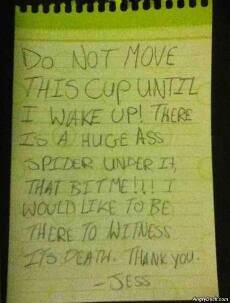 DO NOT MOVE
THIS CUP UNTIL
I WAKE UP! THERE
IS A HUGE ASS
SPIDER UNDER IT,
THAT BIT ME!!! I
WOULD LIKE TO BE
THERE TO WITNESS
ITS DEATH. THANK YOU.
-JESS